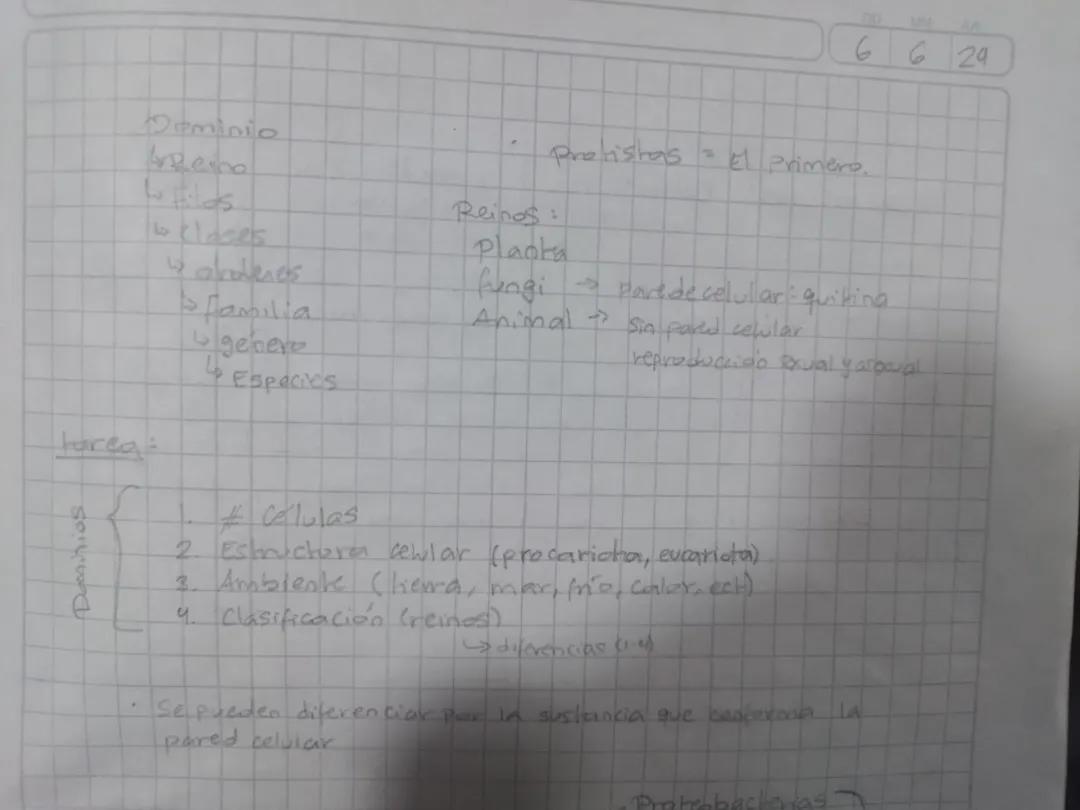 DD MM AA
6 6 24
Dominio
↳ Reino
↳ Filos
↳ Clases
↳ ordenes
↳ familia
↳ genero
↳ Especies
· Protistas = El primero.
Reinos:
Planta
fungi → pared celular: quitina
Animal → sin pared celular
reproducción sexual y asexual
tarea:
Dominios
1. # Células
2. Estructura celular (procariota, eucariota)
3. Ambiente (tierra, mar, frío, calor, ect)
4. Clasificación (reinos)
↳ diferencias
· Se pueden diferenciar por la sustancia que conforma la
pared celular
· Proteobacterias